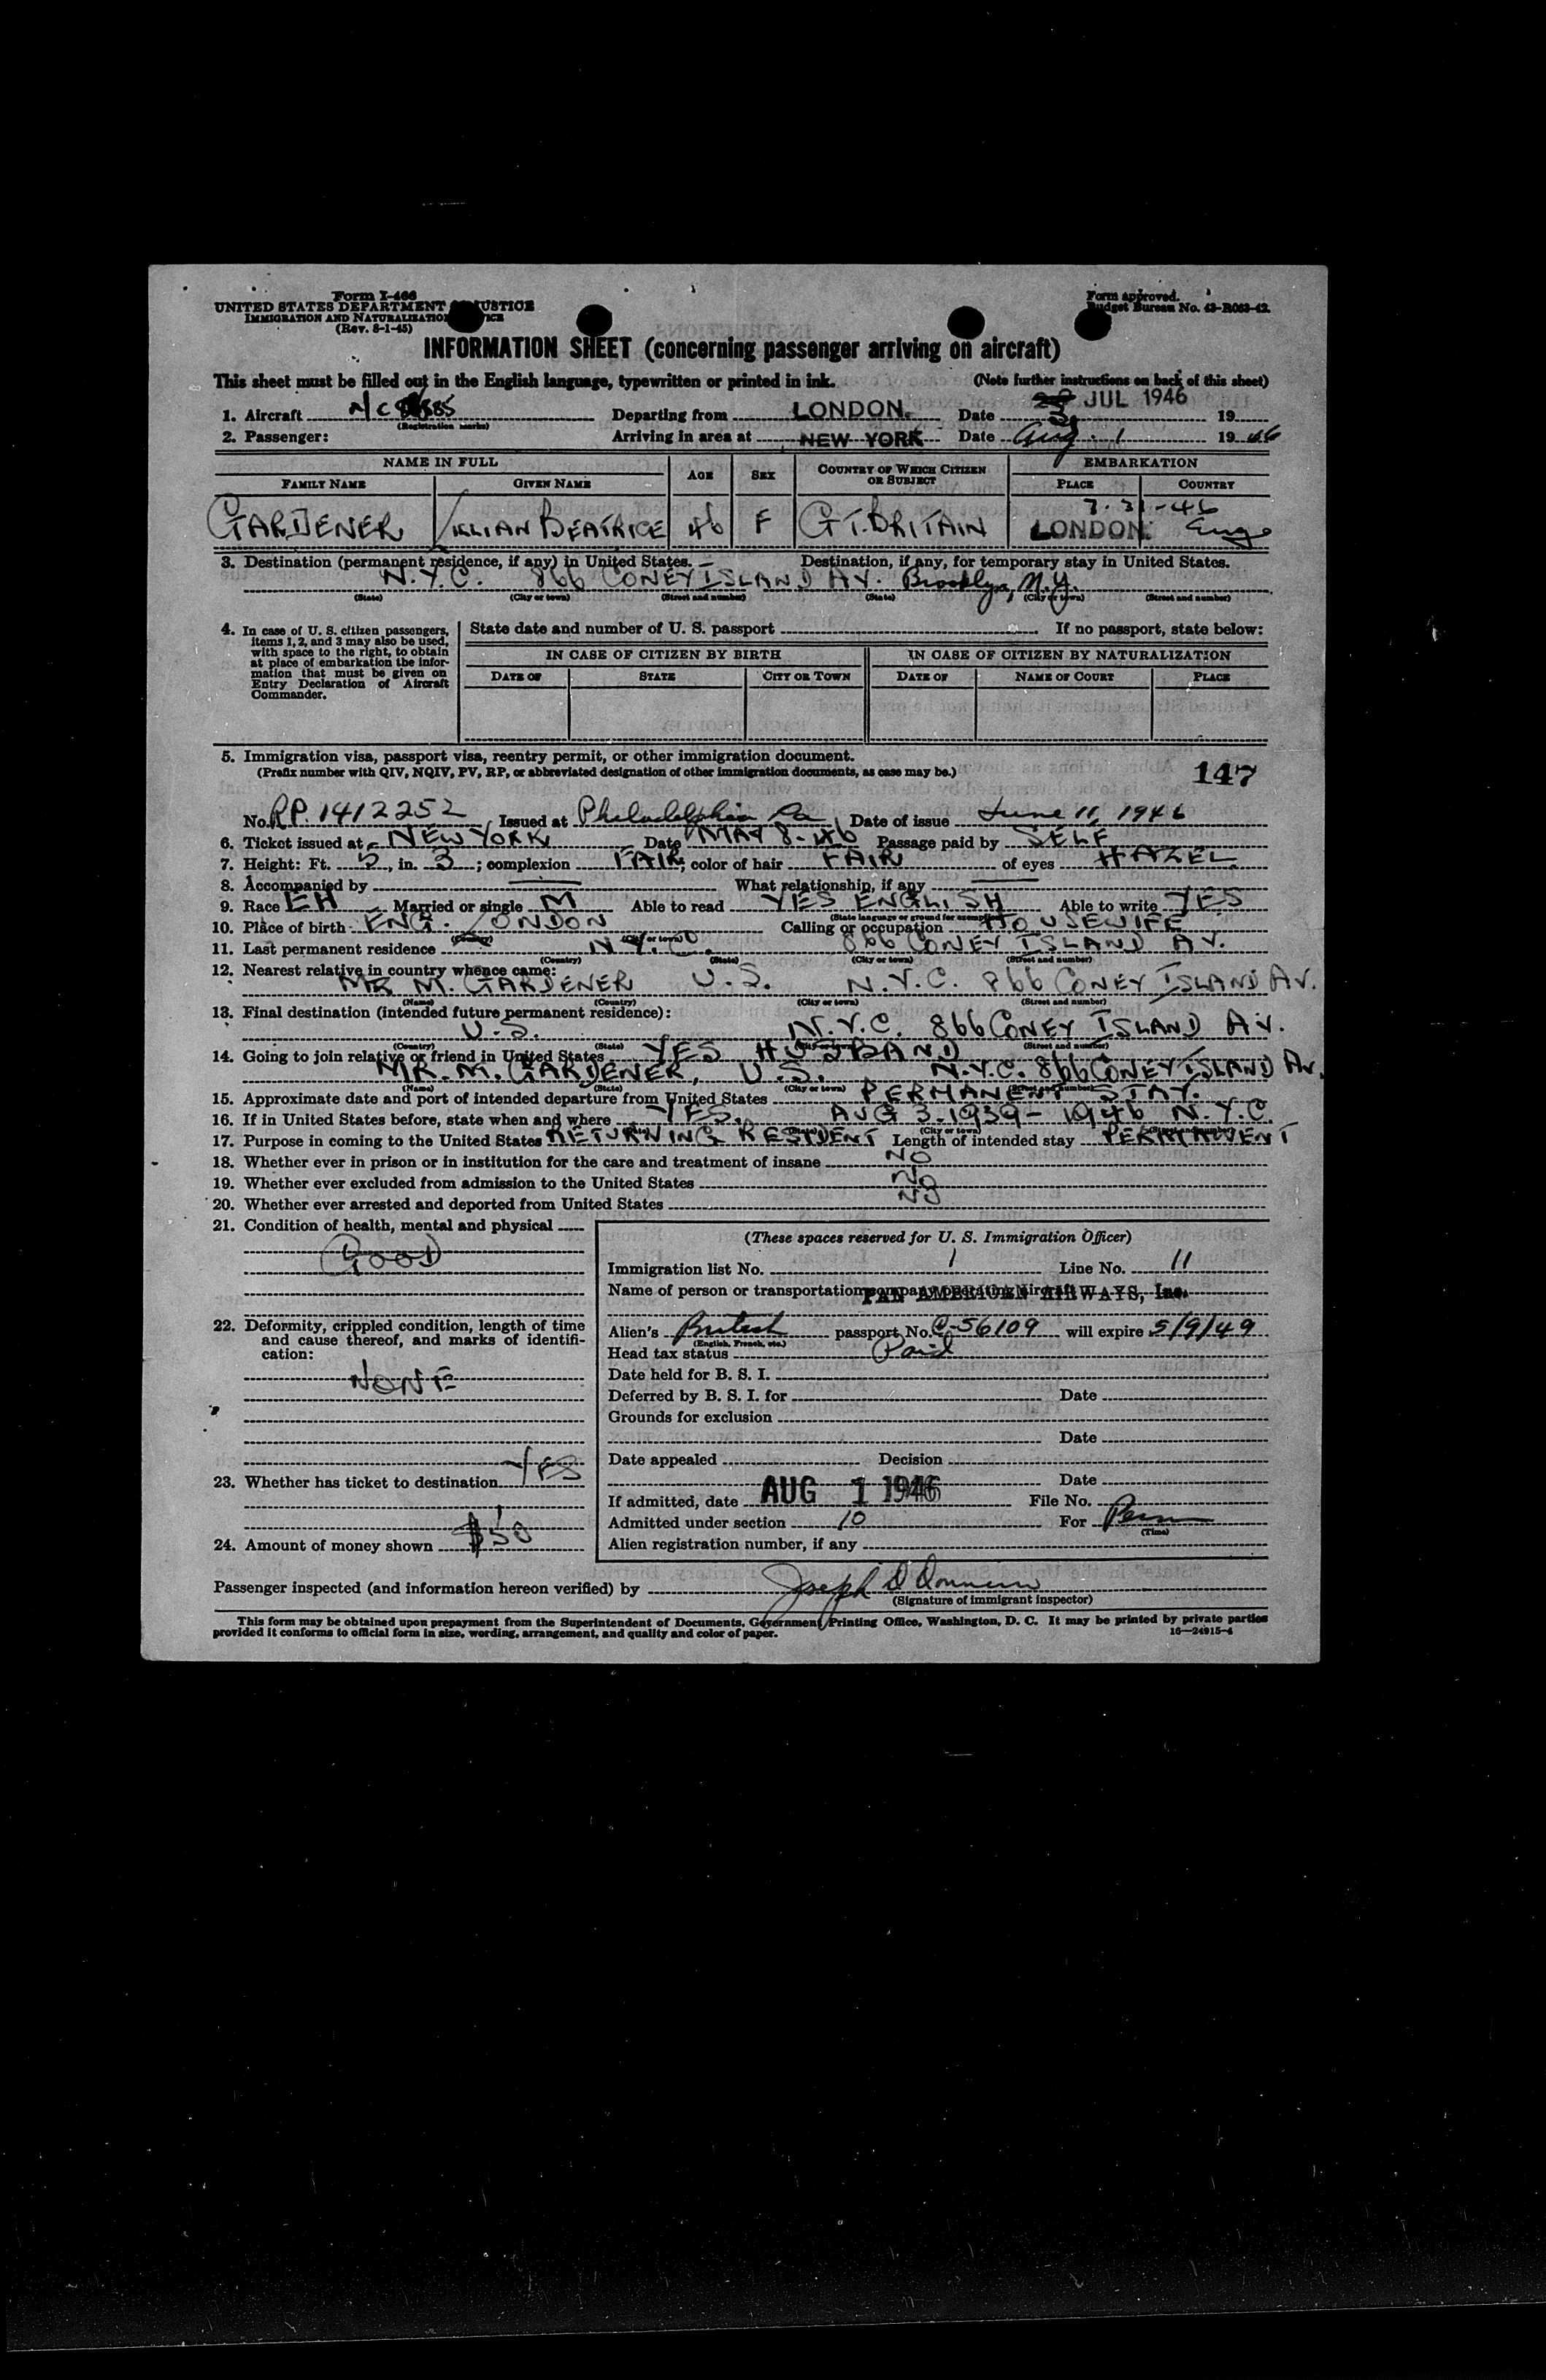 Form I-466
UNITED STATES DEPARTMENT OF JUSTICE
IMMIGRATION AND NATURALIZATION SERVICE
(Rev. 8-1-45)
Form approved.
Budget Bureau No. 43-R063-42.
INFORMATION SHEET (concerning passenger arriving on aircraft)
This sheet must be filled out in the English language, typewritten or printed in ink. (Note further instructions on back of this sheet)
1. Aircraft NC (Registration marks) Departing from LONDON. Date JUL 1946 19
2. Passenger: Arriving in area at NEW YORK Date Aug. 1 1946
NAME IN FULL AGE SEX COUNTRY OF WHICH CITIZEN OR SUBJECT EMBARKATION
FAMILY NAME GIVEN NAME PLACE COUNTRY
7-31-46
GARDENER LILLIAN BEATRICE 46 F GT. BRITAIN LONDON. Eng
3. Destination (permanent residence, if any) in United States. — Destination, if any, for temporary stay in United States.
N.Y.C. 866 CONEY ISLAND AV. Brooklyn, N.Y.
(State) (City or town) (Street and number) (State) (City or town) (Street and number)
4. In case of U. S. citizen passengers, items 1, 2, and 3 may also be used, with space to the right, to obtain at place of embarkation the information that must be given on Entry Declaration of Aircraft Commander.
State date and number of U. S. passport If no passport, state below:
IN CASE OF CITIZEN BY BIRTH IN CASE OF CITIZEN BY NATURALIZATION
DATE OF STATE CITY OR TOWN DATE OF NAME OF COURT PLACE
5. Immigration visa, passport visa, reentry permit, or other immigration document.
(Prefix number with QIV, NQIV, PV, RP, or abbreviated designation of other immigration documents, as case may be.)
147
No. RP 1412252 Issued at Philadelphia Pa Date of issue June 11, 1946
6. Ticket issued at NEW YORK Date MAY 8-46 Passage paid by SELF
7. Height: Ft. 5, in. 3; complexion FAIR; color of hair FAIR of eyes HAZEL
8. Accompanied by — What relationship, if any —
9. Race EH Married or single M Able to read YES ENGLISH Able to write YES
(State language or ground for exemption)
10. Place of birth ENG. LONDON Calling or occupation HOUSEWIFE
(Country) (City or town)
11. Last permanent residence N.Y.C. 866 CONEY ISLAND AV.
(Country) (State) (City or town) (Street and number)
12. Nearest relative in country whence came:
MR M. GARDENER U.S. N.Y.C. 866 CONEY ISLAND AV.
(Name) (Country) (City or town) (Street and number)
13. Final destination (intended future permanent residence):
U.S. N.Y.C. 866 CONEY ISLAND AV.
(Country) (State) (City or town) (Street and number)
14. Going to join relative or friend in United States YES HUSBAND
MR. M. GARDENER, U.S. N.Y.C. 866 CONEY ISLAND AV.
(Name) (State) (City or town) (Street and number)
15. Approximate date and port of intended departure from United States PERMANENT STAY.
16. If in United States before, state when and where YES. AUG 3. 1939 - 1946 N.Y.C.
(State) (State) (City or town) (Street and number)
17. Purpose in coming to the United States RETURNING RESIDENT Length of intended stay PERMANENT
18. Whether ever in prison or in institution for the care and treatment of insane NO
19. Whether ever excluded from admission to the United States NO
20. Whether ever arrested and deported from United States NO
21. Condition of health, mental and physical
GOOD
22. Deformity, crippled condition, length of time and cause thereof, and marks of identification:
NONE
23. Whether has ticket to destination YES
24. Amount of money shown $50
(These spaces reserved for U. S. Immigration Officer)
Immigration list No. 1 Line No. 11
Name of person or transportation company operating aircraft PAN AMERICAN AIRWAYS, Inc.
Alien's British passport No. C-56109 will expire 5/9/49
(English, French, etc.)
Head tax status Paid
Date held for B. S. I.
Deferred by B. S. I. for Date
Grounds for exclusion
Date
Date appealed Decision
Date
If admitted, date AUG 1 1946 File No.
Admitted under section 10 For Perm
(Time)
Alien registration number, if any
Passenger inspected (and information hereon verified) by Joseph
(Signature of immigrant inspector)
This form may be obtained upon prepayment from the Superintendent of Documents, Government Printing Office, Washington, D. C. It may be printed by private parties
provided it conforms to official form in size, wording, arrangement, and quality and color of paper. 16—24915-4